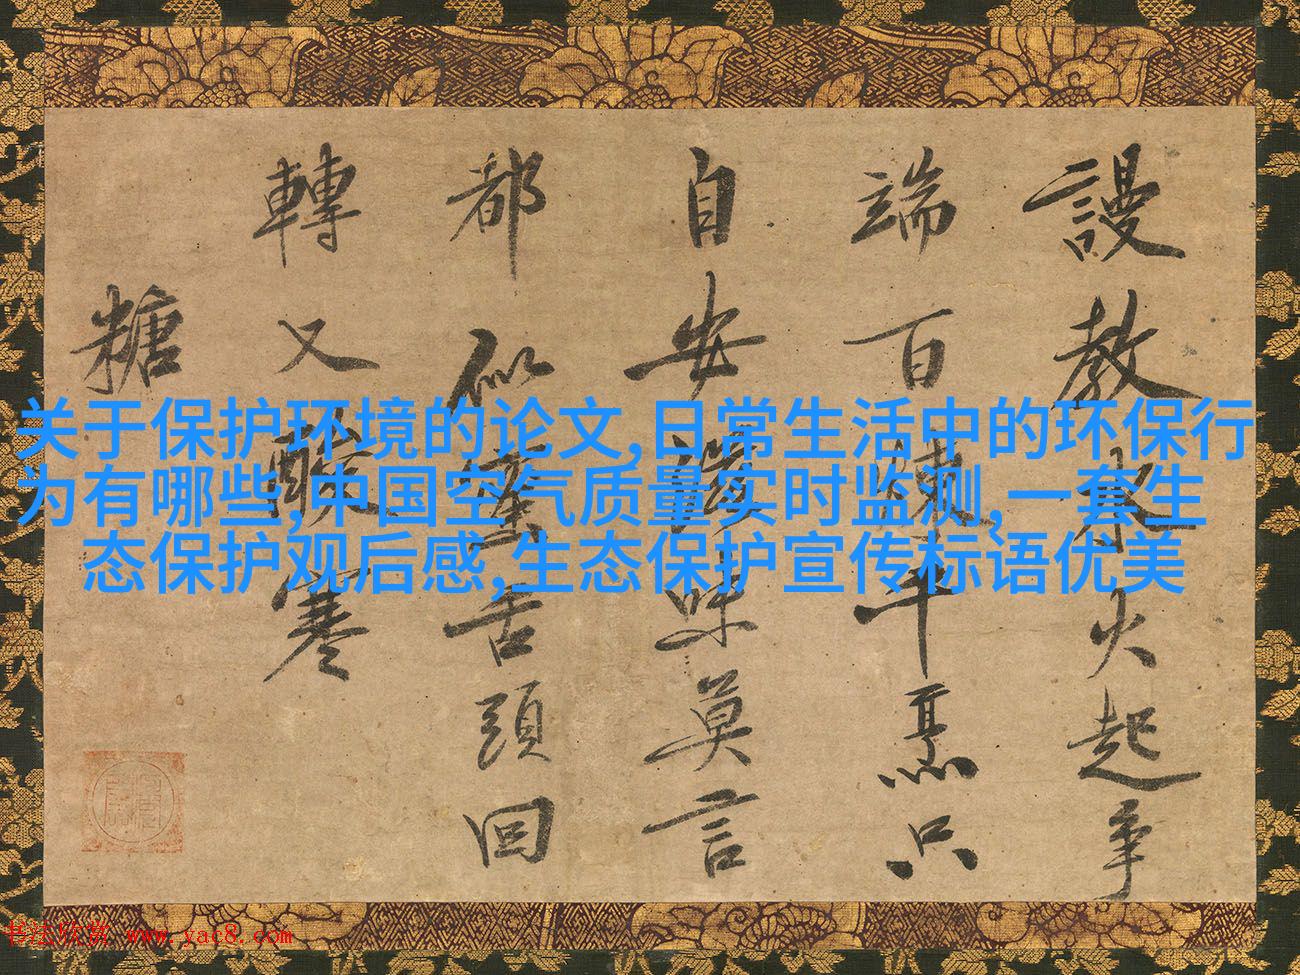 关于保护环境的论文,日常生活中的环保行
为有哪些,中国空气质量实时监测,一套生
态保护观后感,生态保护宣传标语优美
謾教水火起爭
端百煉千熏只
自安滋味莫言
都似蜜舌頭回
轉又酸寒
糖
书法欣赏 www.yac8.com